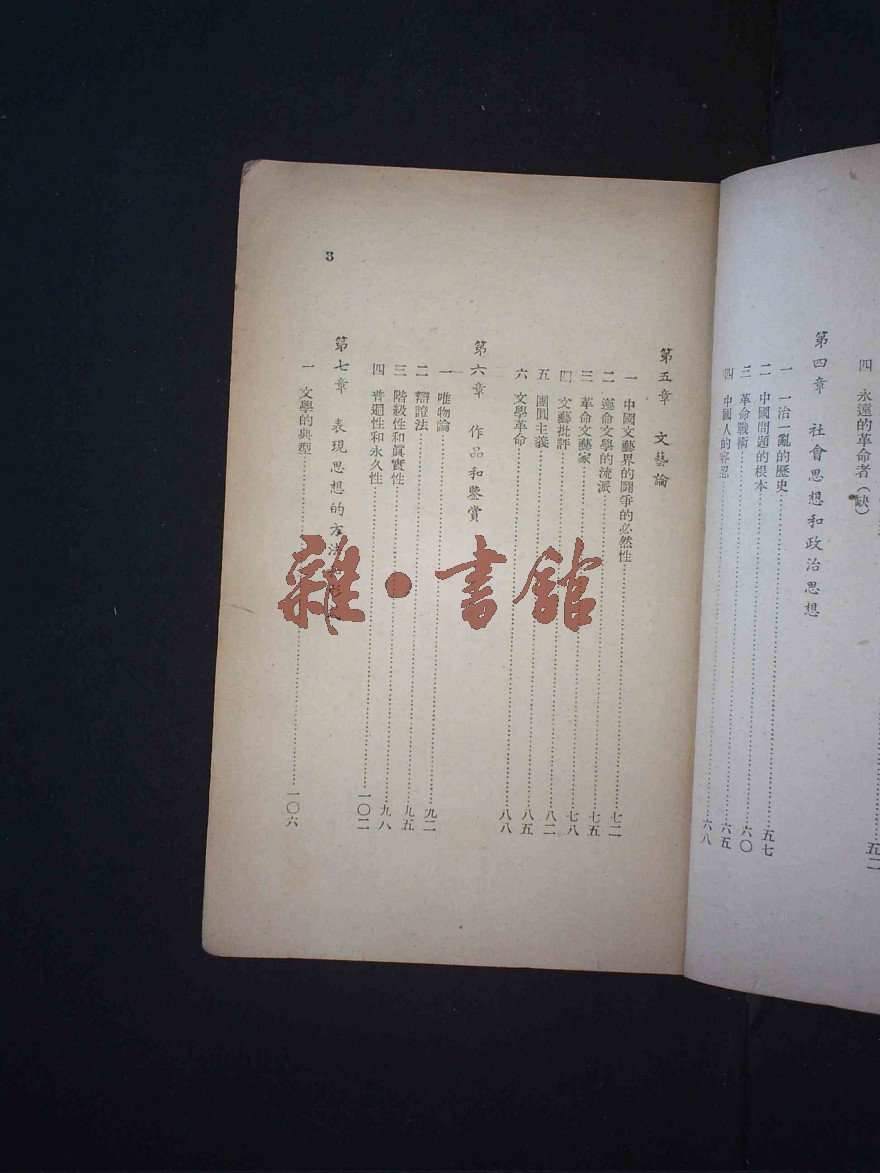 四 永遠的革命者（缺）……五二
第四章 社會思想和政治思想
一 一治一亂的歷史……五七
二 中國問題的根本……六〇
三 革命戰術……六五
四 中國人的容忍……六八
第五章 文藝論
一 中國文藝界的鬪爭的必然性……七二
二 革命文學的流派……七五
三 革命文藝家……七八
四 文藝批評……八二
五 團圓主義……八五
六 文學革命……八八
第六章 作品和鑒賞
一 唯物論……九二
二 辯證法……九五
三 階級性和眞實性……九八
四 普遍性和永久性……一〇二
第七章 表現思想的方法
一 文學的典型……一〇六
3
雜·書館